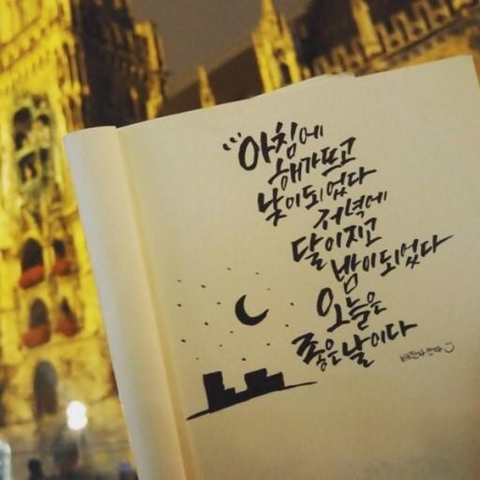 아침에
해가 뜨고
낮이 되었다
저녁에
달이 지고
밤이 되었다
오늘은
좋은 날이다